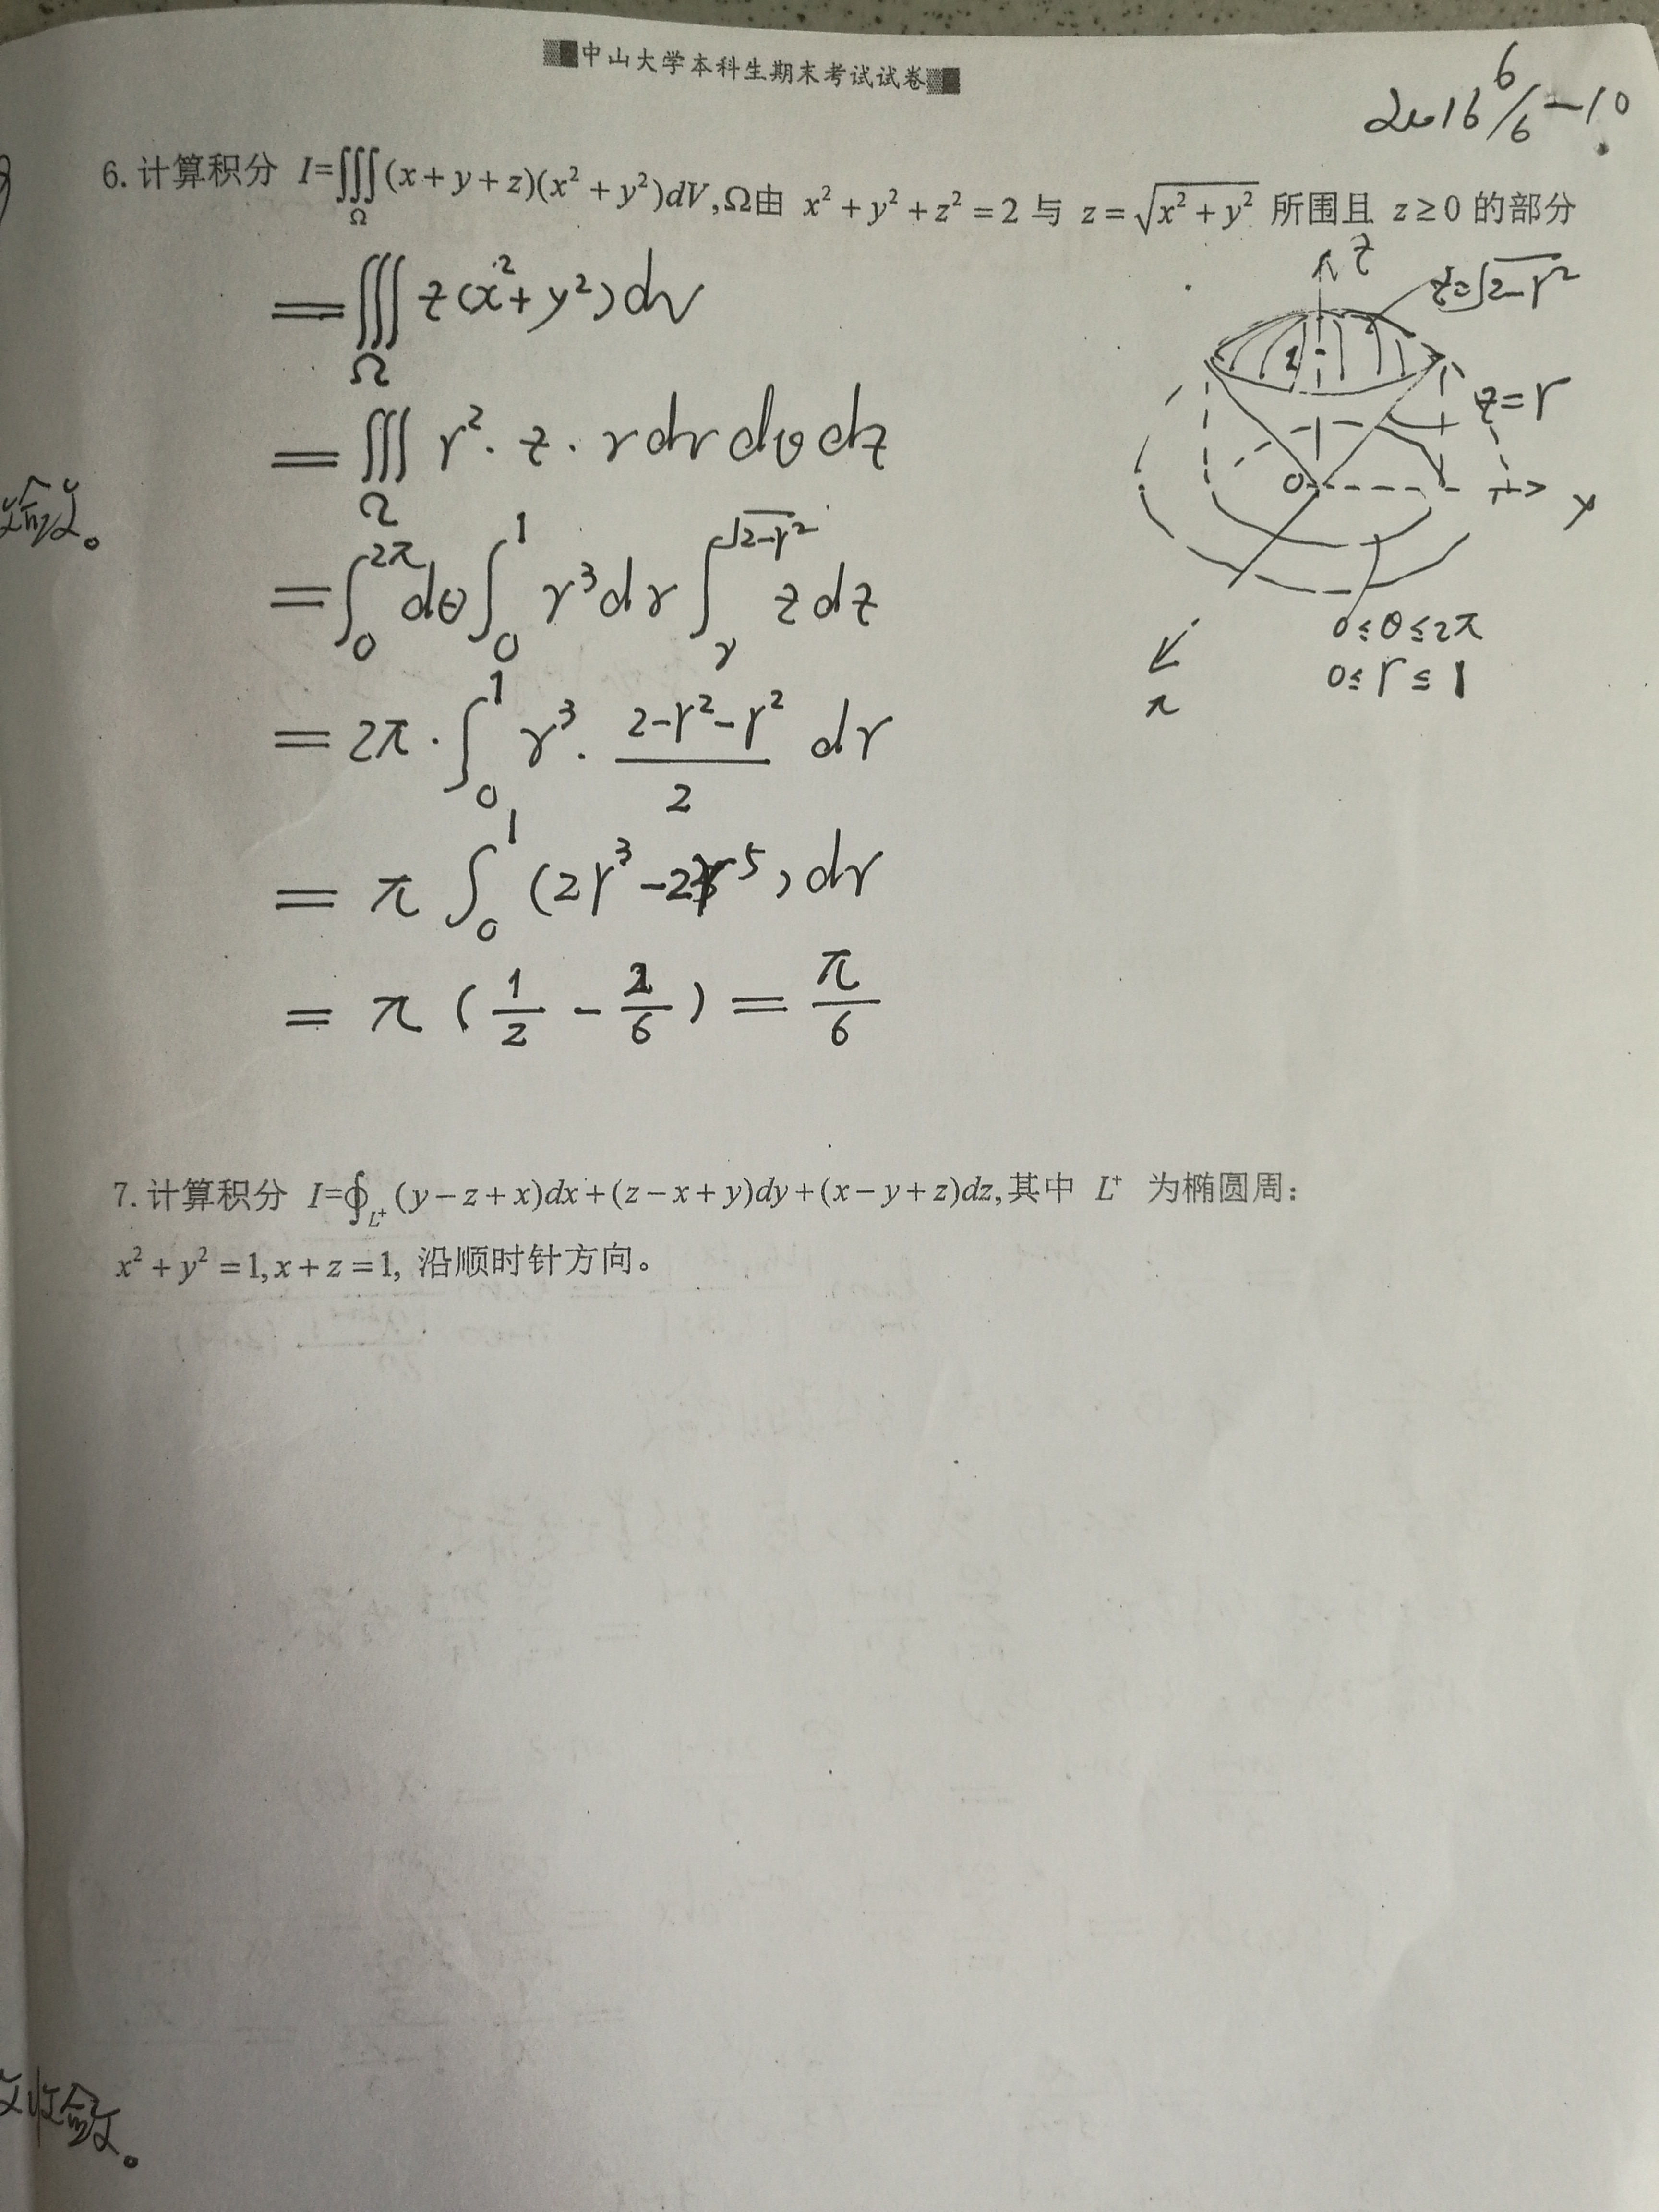 中山大学本科生期末考试试卷
2016 6/6-10
6. 计算积分 I=∭_Ω (x+y+z)(x²+y²)dV,Ω由 x²+y²+z²=2 与 z=√(x²+y²) 所围且 z≥0 的部分
=∭_Ω z(x²+y²)dv
=∭_Ω r²·z·rdrdθdz
=∫₀^2π dθ∫₀^1 r³dr∫_r^√(2-r²) zdz
=2π·∫₀^1 r³·(2-r²-r²)/2 dr
=π∫₀^1 (2r³-2r⁵)dr
=π(1/2-2/6)=π/6
z
z=√(2-r²)
1
z=r
0
y
0≤θ≤2π
x
0≤r≤1
敛。
7. 计算积分 I=∮_L⁺ (y-z+x)dx+(z-x+y)dy+(x-y+z)dz,其中 L⁺ 为椭圆周:
x²+y²=1,x+z=1, 沿顺时针方向。
收敛。